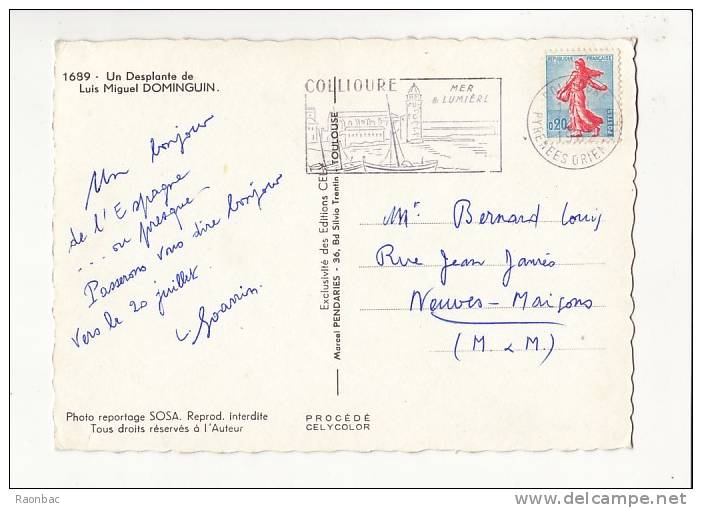 1689 - Un Desplante de
Luis Miguel DOMINGUIN.
COLLIOURE
MER
& LUMIÈRE
REPUBLIQUE FRANÇAISE
0,20
POSTES
PYRENEES ORIEN
Un bonjour
de l'Espagne
... ou presque
Passerons vous dire bonjour
vers le 20 juillet.
Exclusivité des Editions CELY
Marcel PENDARIES - 36, Bd Silvio Trentin - TOULOUSE
Mr Bernard Louis
Rue Jean Jaurès
Neuves-Maisons
(M. & M.)
Photo reportage SOSA. Reprod. interdite
Tous droits réservés à l'Auteur
PROCÉDÉ
CELYCOLOR
Raonbac
delcampe.net